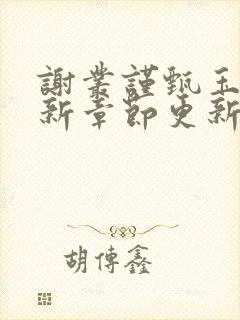 謝業謹甄玉
新章節更新
胡傳鑫